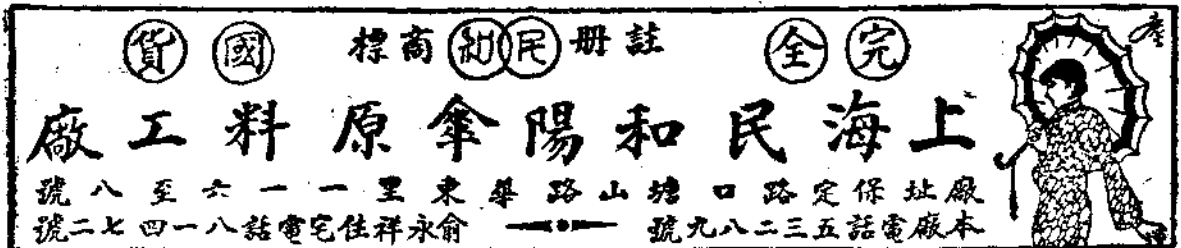 完全 註冊 民和 商標 國貨
上海民和陽傘原料工廠
廠址保定路口塘山路華東里一一六至八號
本廠電話五三二八九號 俞永祥住宅電話八一四七二號